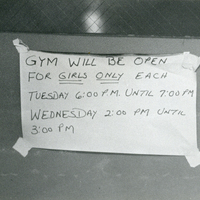 GYM WILL BE OPEN
FOR GIRLS ONLY EACH
TUESDAY 6:00 P.M. UNTIL 7:00 PM
WEDNESDAY 2:00 PM UNTIL
3:00 PM